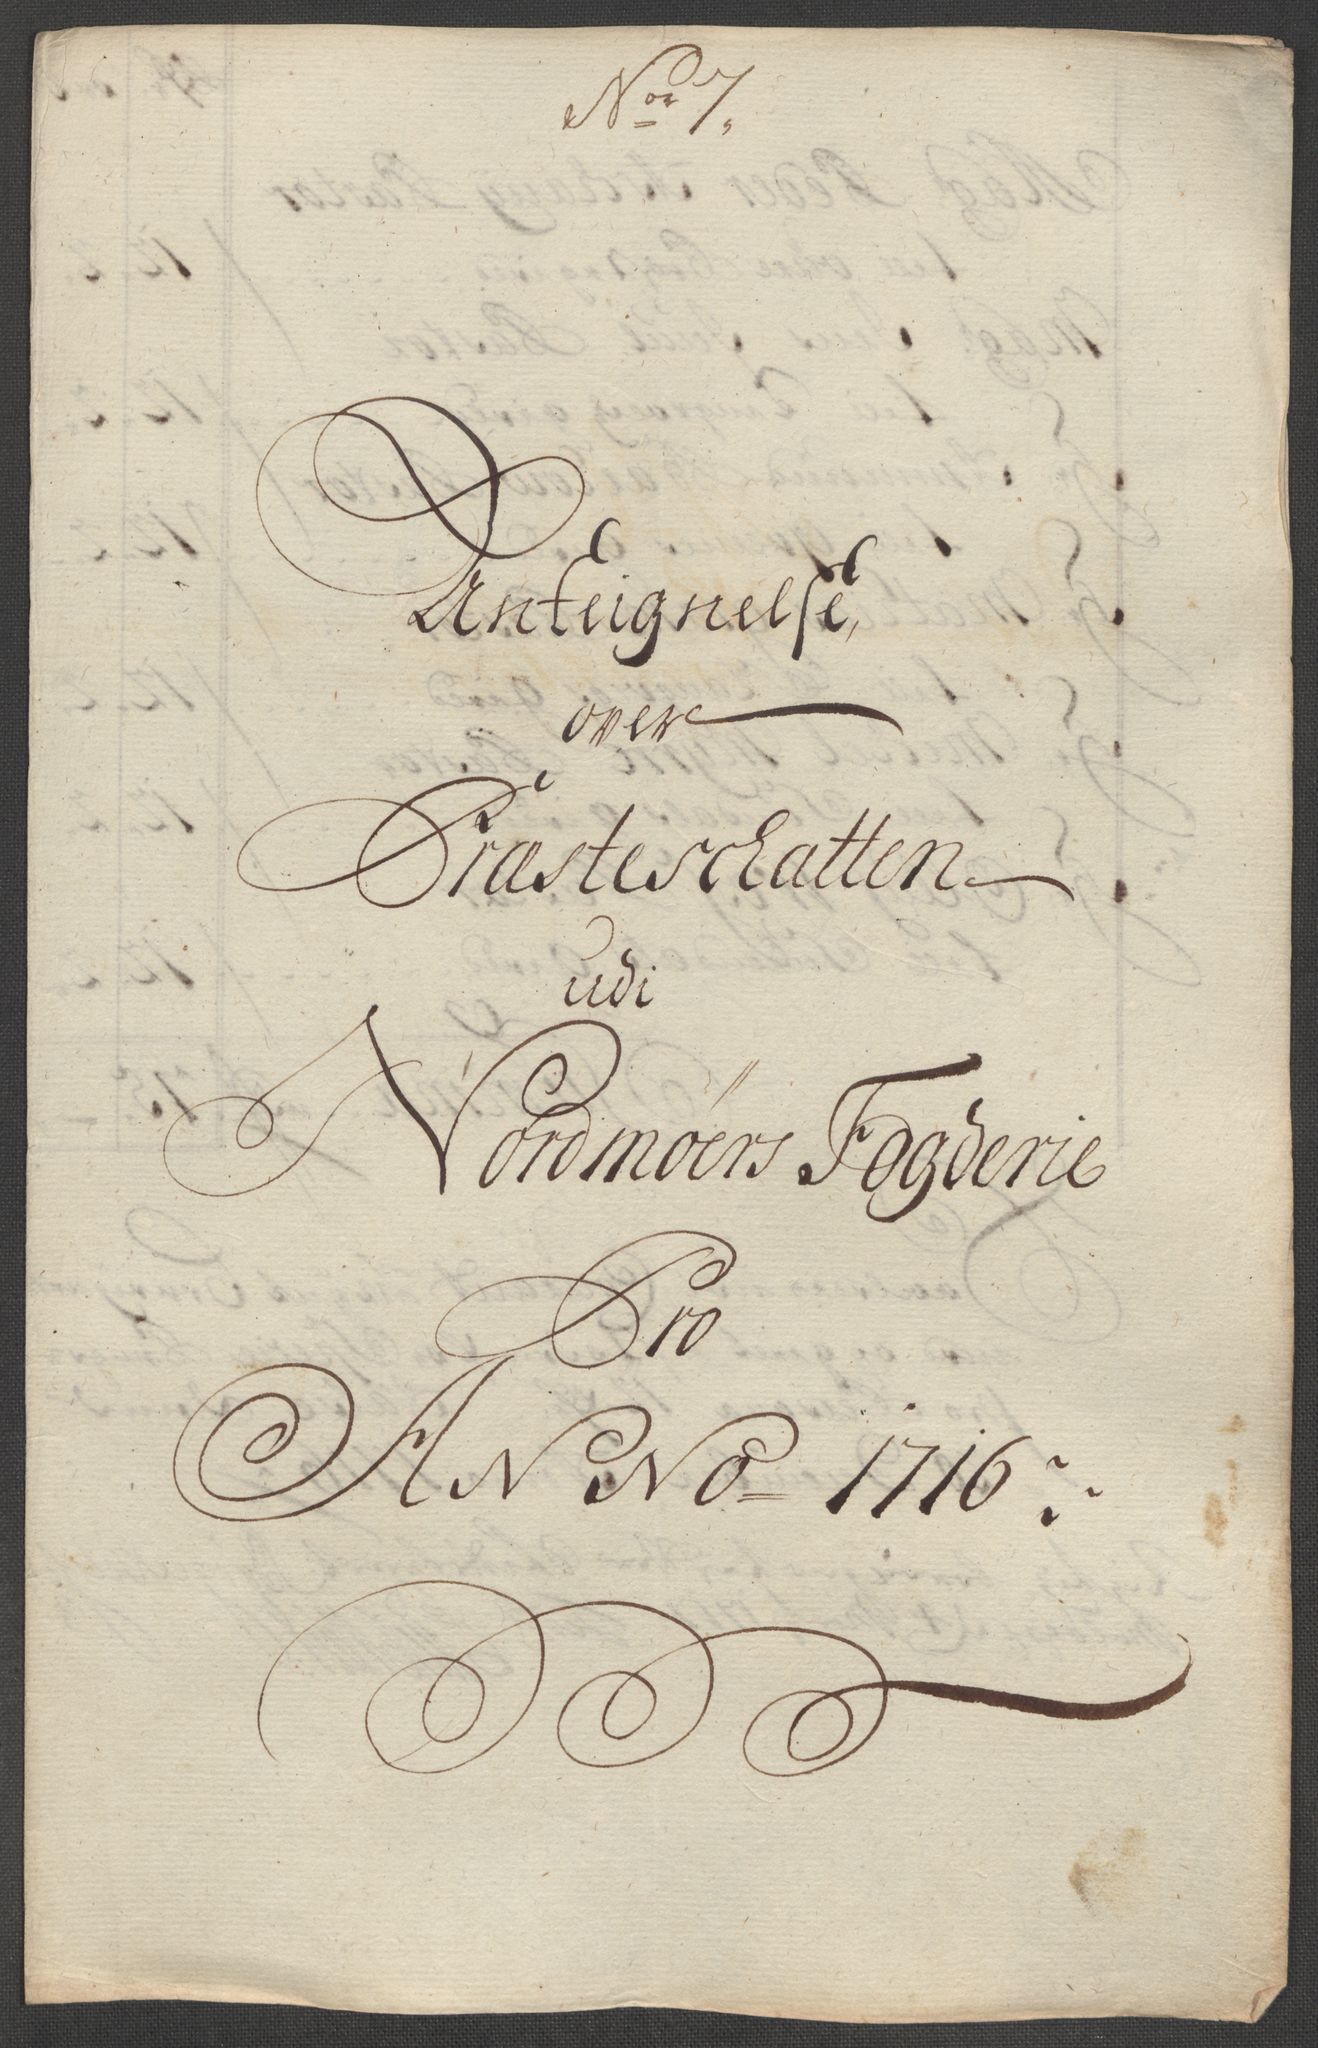 No 7.
Anteignelse,
over
Præsteschatten
udi
Nordmøers Fogderie
Pro
ANNo 1716: